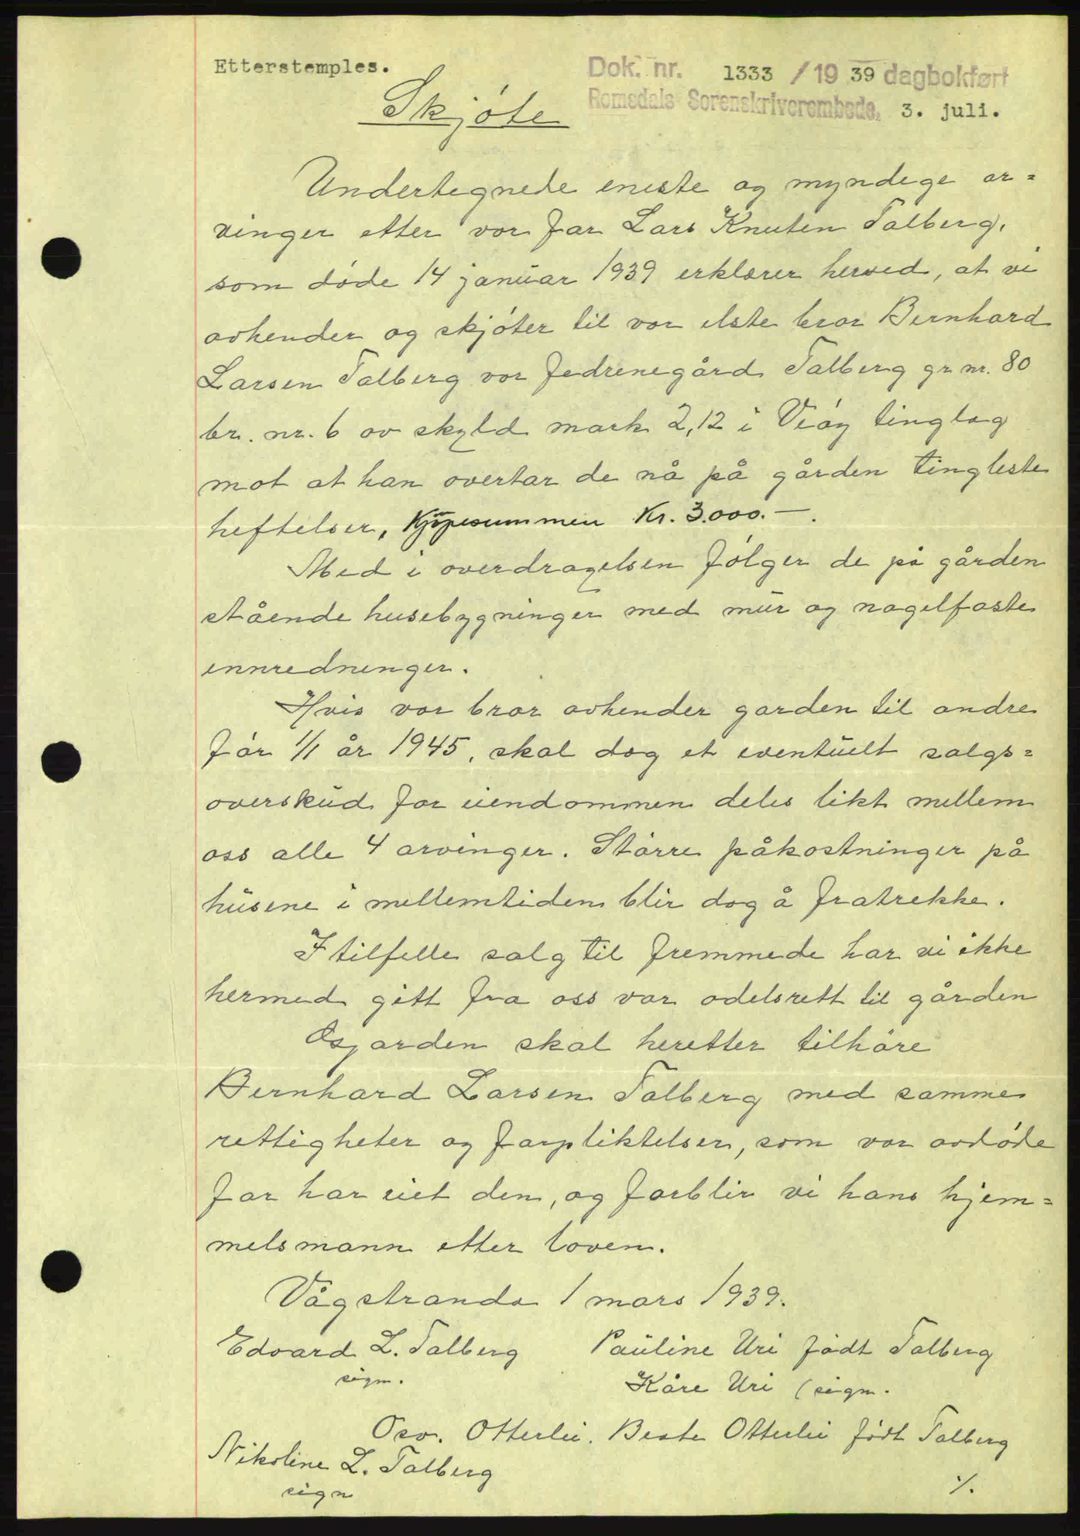 Etterstemples.
Dok. nr. 1333 / 19 39 dagbokført
Romsdals Sorenskriverembede, 3. juli.
Skjøte
Undertegnede eneste og myndige ar=
vinger etter vor far Lars Knuten Talberg,
som døde 14 januar 1939 erklærer herved, at vi
avhender og skjøter til vor elste bror Bernhard
Larsen Talberg vor fedrenegård Talberg gr. nr. 80
br. nr. 6 av skyld mark 2,12 i Veøy tinglag
mot at han overtar de nå på gården tingleste
heftelser, Kjøpesummen Kr. 3.000.—.
Med i overdragelsen følger de på gården
stående husebygninger med mur og nagelfaste
innredninger.
Hvis vor bror avhender garden til andre
før 1/1 år 1945, skal dog et eventuelt salgs=
overskud for eiendommen deles likt mellem
oss alle 4 arvinger. Større påkostninger på
husene i mellemtiden blir dog å fratrekke.
I tilfelle salg til fremmede har vi ikke
hermed gitt fra oss vor odelsrett til gården
skal heretter tilhøre
Bernhard Larsen Talberg med samme
rettigheter og forpliktelser, som vor avdøde
far har eiet den, og forblir vi hans hjem=
melsmann etter loven.
Vågstranda 1 mars 1939.
Edvard L. Talberg Pauline Uri født Talberg
sign. Kåre Uri (sign.
Osv. Otterlei. Beate Otterlei født Talberg
Nikoline L. Talberg
sign ./.